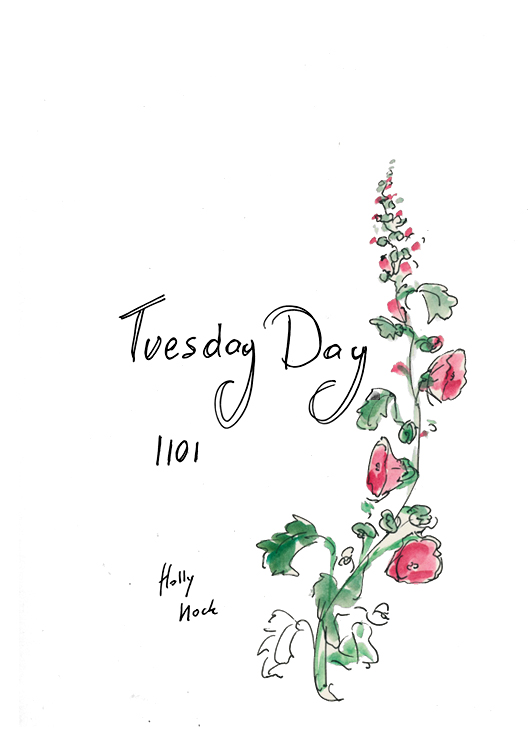 Tuesday Day
1101
Holly
Hock